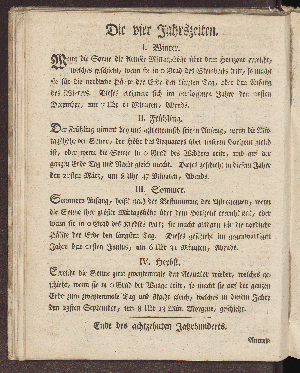 Die vier Jahrszeiten.
I. Winter.
Wenn die Sonne die kleinste Mittagshöhe über dem Horizont erreicht,
welches geschieht, wann sie in 0 Grad des Steinbocks tritt, so macht
sie für die nordliche Hälfte der Erde den kürzten Tag, oder den Anfang
des Winters. Dieses ereignete sich im verflossenen Jahre den 21sten
Dezember, um 7 Uhr Minuten, Abends.
II. Frühling.
Der Frühling nimmt bey uns astronomisch seinen Anfang, wenn die Mit-
tagshöhe der Sonne, der Höhe des Aequators über unserm Horizont gleich
ist, oder wann sie in 0 Grad des Widders tritt, und auf der
ganzen Erde Tag und Nacht gleich macht. Dieses geschieht in diesem Jahre
den März, um 8 Uhr 47 Minuten, Abends.
III. Sommer.
Sommers Anfang, heißt nach der Bestimmung der Astronomen, wenn
die Sonne ihre größte Mittagshöhe über dem Horizont erreicht hat, oder
wann sie in 0 Grad des Krebses tritt; sie macht alsdann für die nordliche
Hälfte der Erde den längsten Tag. Dieses geschieht im gegenwärtigen
Jahre den 21sten Junius, um 6 Uhr Minuten, Abends.
IV. Herbst.
Erreicht die Sonne zum zweytenmale den Aequator wieder, welches ge-
schieht, wenn sie in 0 Grad der Waage tritt, so macht sie auf der ganzen
Erde zum zweytenmale Tag und Nacht gleich, welches in diesem Jahre
den September, um 8 Uhr Min. Morgens, geschieht.
Ende des achtzehnten Jahrhunderts.